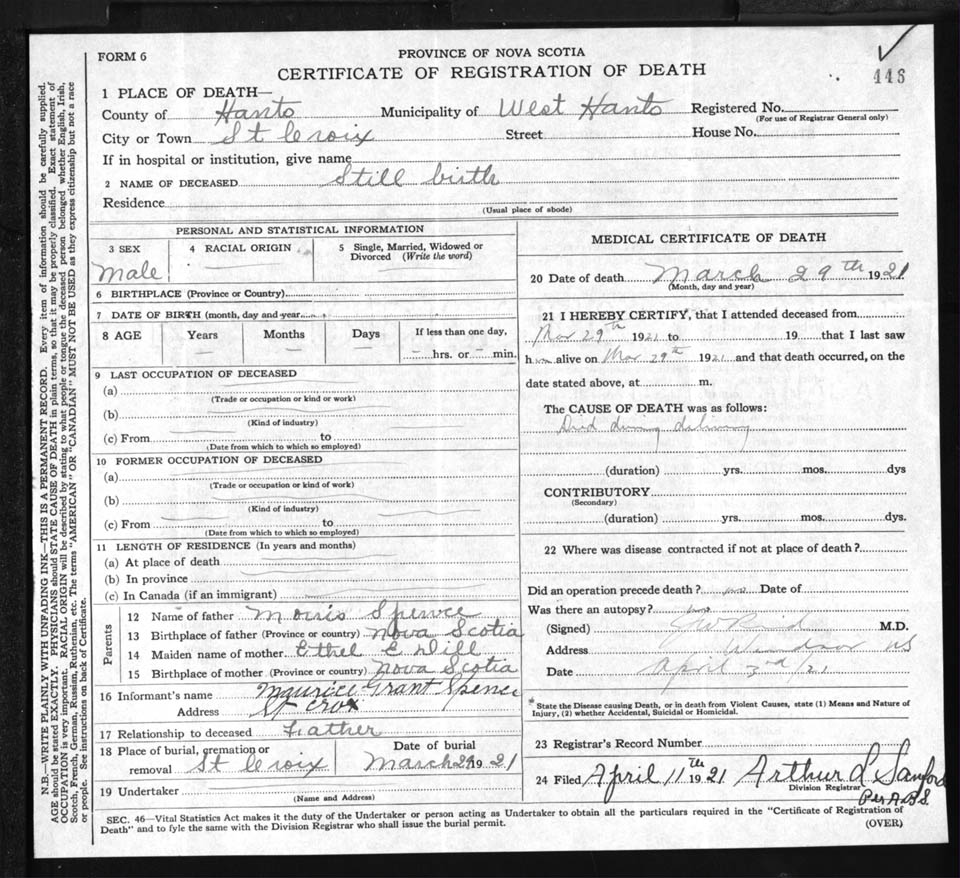 FORM 6
PROVINCE OF NOVA SCOTIA
CERTIFICATE OF REGISTRATION OF DEATH
446
1 PLACE OF DEATH—
County of Hants Municipality of West Hants Registered No.
(For use of Registrar General only)
City or Town St Croix Street House No.
If in hospital or institution, give name
2 NAME OF DECEASED Still birth
Residence
(Usual place of abode)
PERSONAL AND STATISTICAL INFORMATION
3 SEX 4 RACIAL ORIGIN 5 Single, Married, Widowed or
Divorced (Write the word)
Male
6 BIRTHPLACE (Province or Country)
7 DATE OF BIRTH (month, day and year
8 AGE Years Months Days If less than one day,
— — — – hrs. or – min.
9 LAST OCCUPATION OF DECEASED
(a)
(Trade or occupation or kind or work)
(b)
(Kind of industry)
(c) From to
(Date from which to which so employed)
10 FORMER OCCUPATION OF DECEASED
(a)
(Trade or occupation or kind of work)
(b)
(Kind of industry)
(c) From to
(Date from which to which so employed)
11 LENGTH OF RESIDENCE (In years and months)
(a) At place of death
(b) In province
(c) In Canada (if an immigrant)
Parents
12 Name of father Morris Spence
13 Birthplace of father (Province or country) Nova Scotia
14 Maiden name of mother Ethel E Dill
15 Birthplace of mother (Province or country) Nova Scotia
16 Informant's name Maurice Grant Spence
Address St Croix
17 Relationship to deceased Father
18 Place of burial, cremation or Date of burial
removal St Croix March 29 1921
19 Undertaker
(Name and Address)
MEDICAL CERTIFICATE OF DEATH
20 Date of death March 29th 1921
(Month, day and year)
21 I HEREBY CERTIFY, that I attended deceased from
Mar 29th 1921 to 19 that I last saw
h alive on Mar 29th 1921 and that death occurred, on the
date stated above, at m.
The CAUSE OF DEATH was as follows:
Died during delivery
(duration) yrs. mos. dys
CONTRIBUTORY
(Secondary)
(duration) yrs. mos. dys.
22 Where was disease contracted if not at place of death?
Did an operation precede death? no Date of
Was there an autopsy? no
(Signed) M.D.
Address Windsor NS
Date April 3rd/21
* State the Disease causing Death, or in death from Violent Causes, state (1) Means and Nature of
Injury, (2) whether Accidental, Suicidal or Homicidal.
23 Registrar's Record Number
24 Filed April 11th 1921 Arthur L Sanford
Division Registrar
Per A.B.S.
SEC. 46—Vital Statistics Act makes it the duty of the Undertaker or person acting as Undertaker to obtain all the particulars required in the "Certificate of Registration of
Death" and to fyle the same with the Division Registrar who shall issue the burial permit.
(OVER)
N.B.—WRITE PLAINLY WITH UNFADING INK—THIS IS A PERMANENT RECORD. Every item of information should be carefully supplied.
AGE should be stated EXACTLY. PHYSICIANS should STATE CAUSE OF DEATH in plain terms, so that it may be properly classified. Exact statement of
OCCUPATION is very important. RACIAL ORIGIN will be described by stating to what people or tongue the deceased person belonged whether English, Irish,
Scotch, French, German, Russian, Ruthenian, etc. The terms "AMERICAN" OR "CANADIAN" MUST NOT BE USED as they express citizenship but not a race
or people. See instructions on back of Certificate.